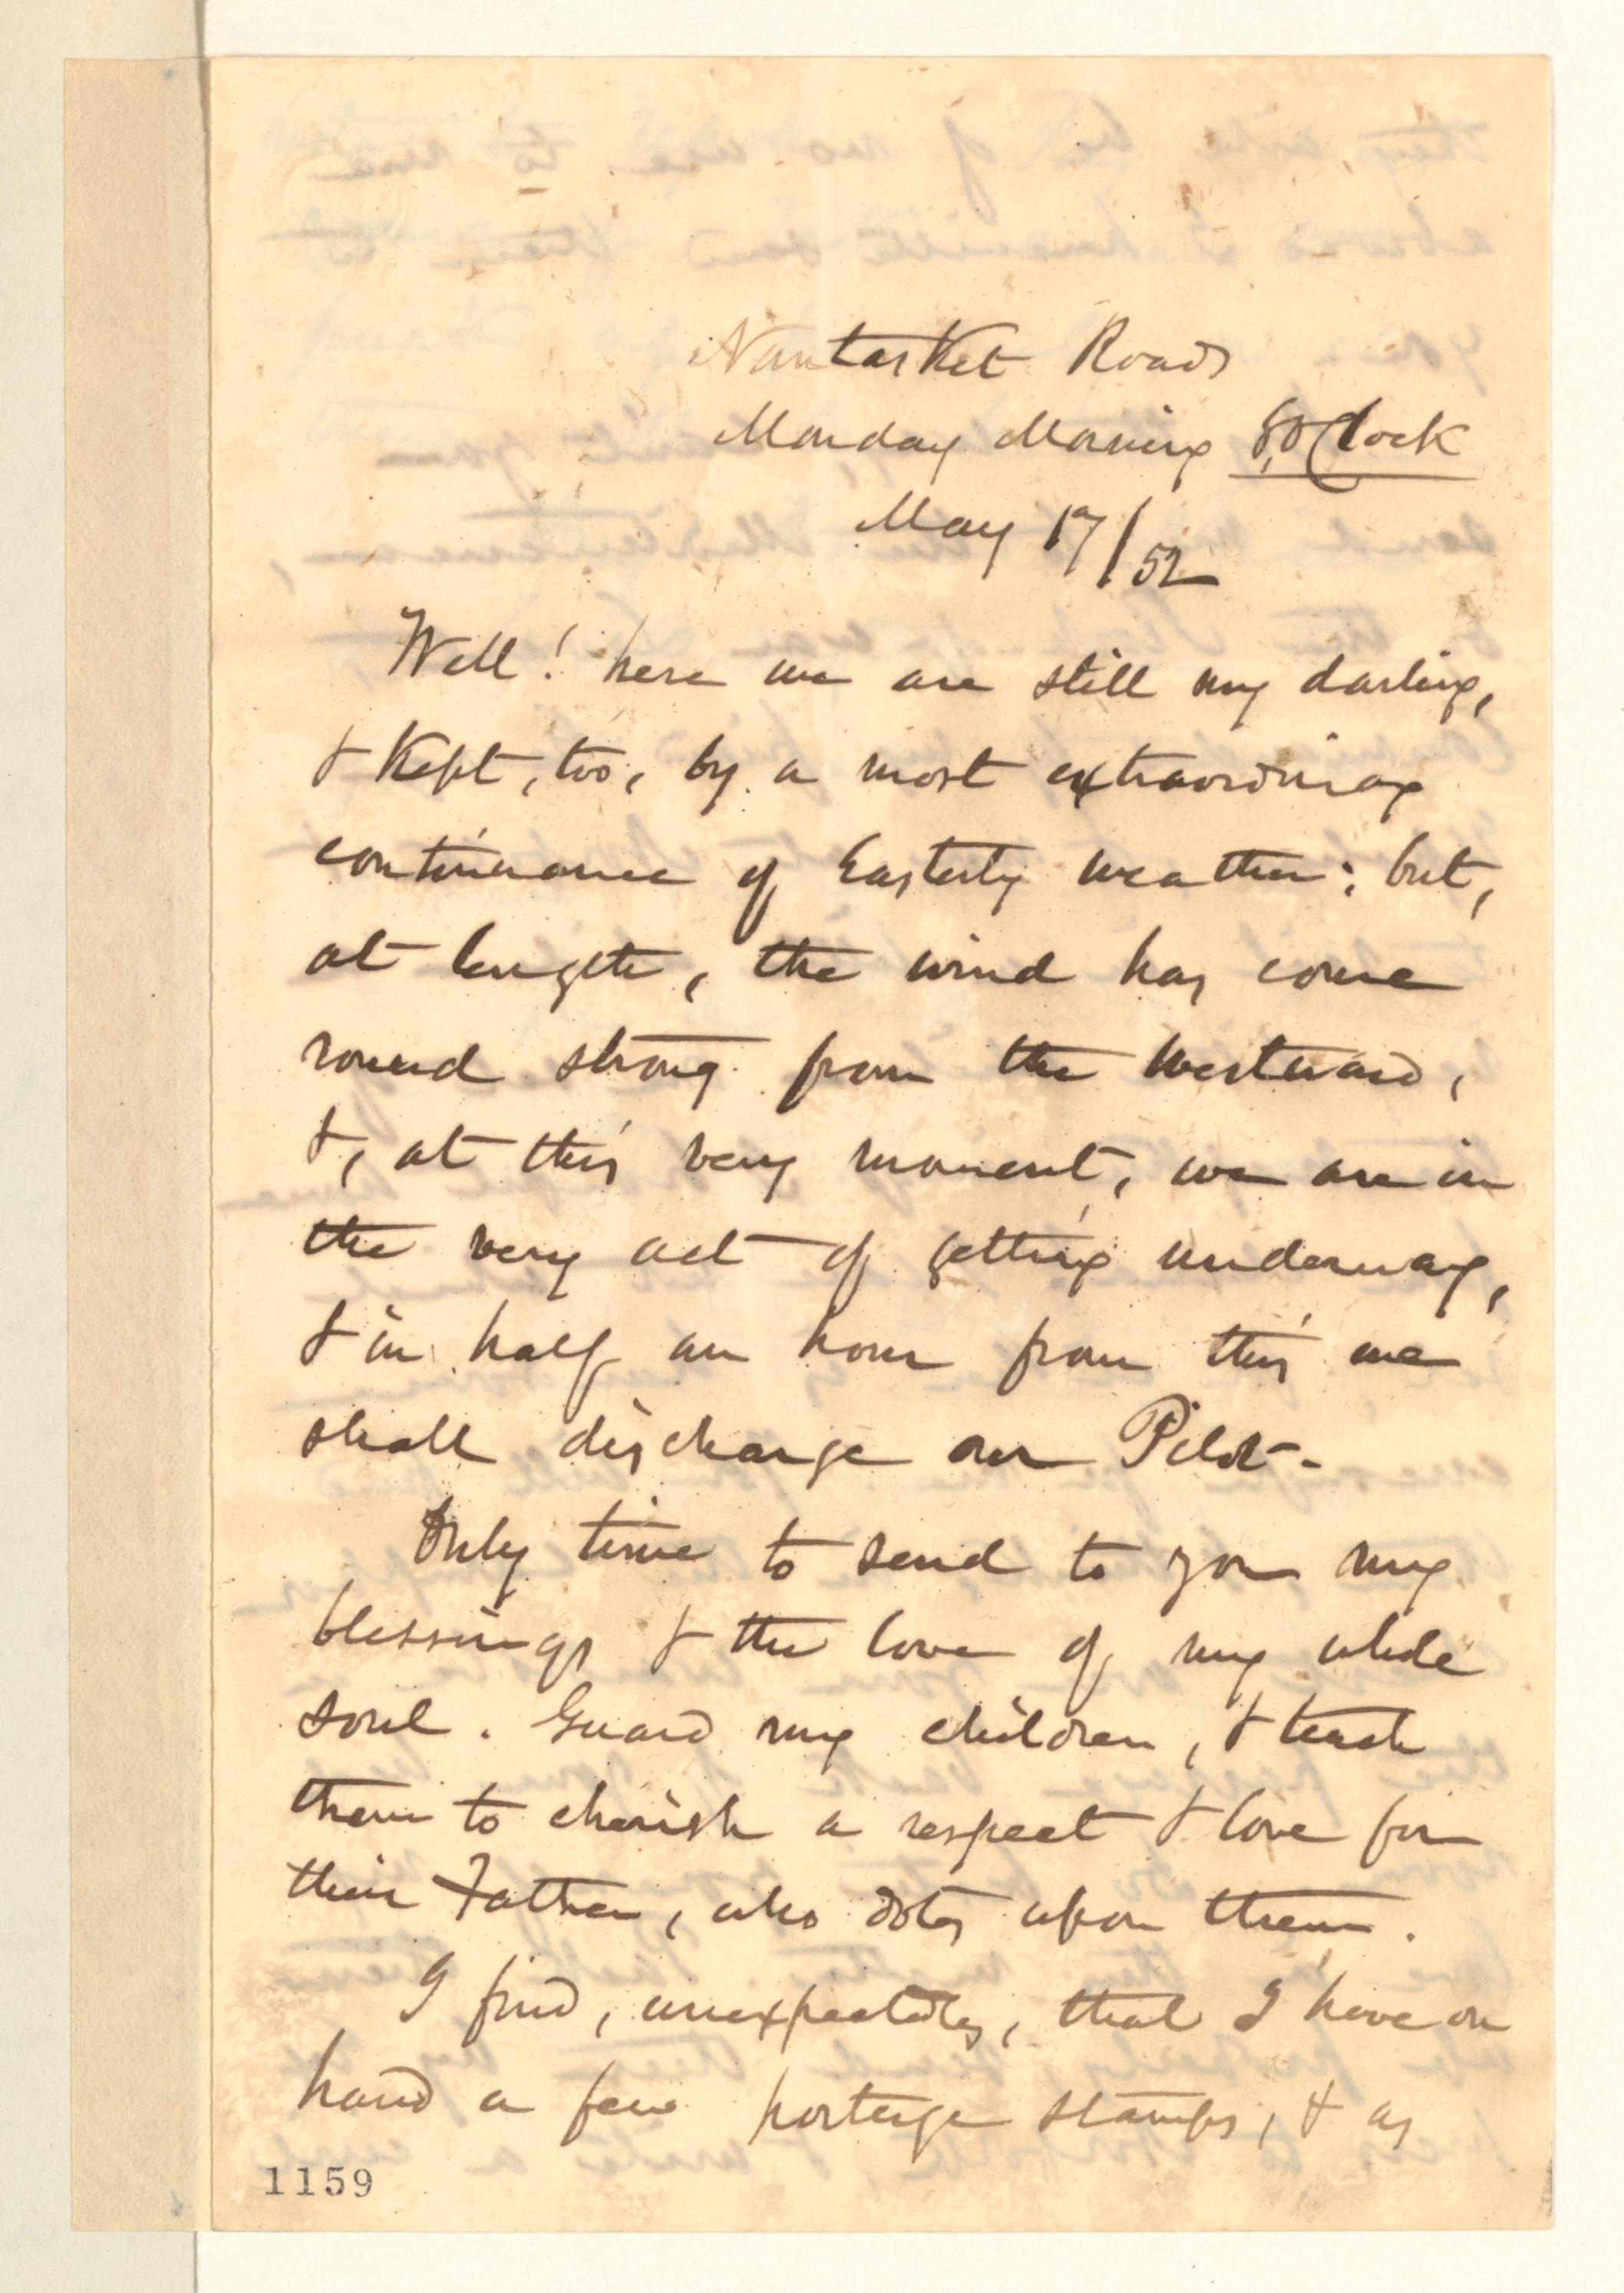 Nantasket Roads
Monday Morning 8, O'Clock
May 17/52
Well! here we are still my darling,
& Kept, too, by a most extraordinary
continuance of Easterly weather; but,
at length, the wind has come
round strong from the Westward,
&, at this very moment, we are in
the very act of getting underway,
& in half an hour from this we
shall discharge our Pilot -
Only time to send to you my
blessings & the love of my whole
soul. Guard my children, & teach
them to cherish a respect & love for
their Father, who dotes upon them.
I find, unexpectedly, that I have on
hand a few postage stamps, & as
1159